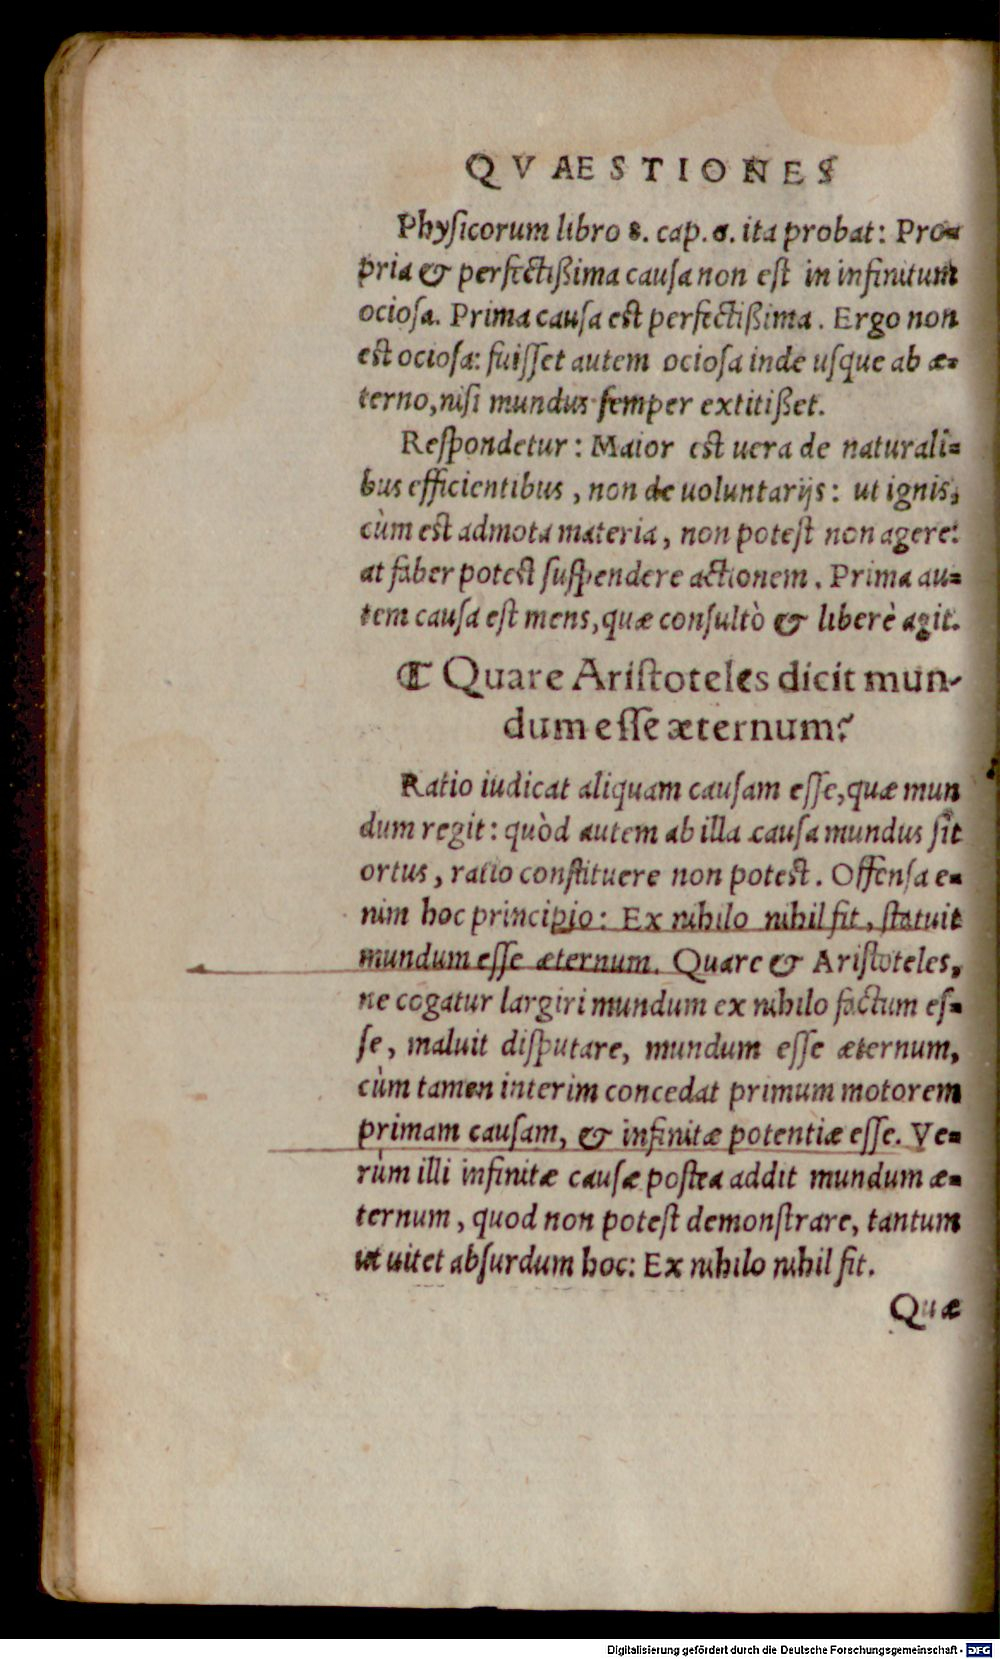 QVAESTIONES
Physicorum libro 8. cap. 6. ita probat: Pro-
pria & perfectißima causa non est in infinitum
ociosa. Prima causa est perfectißima. Ergo non
est ociosa: fuisset autem ociosa inde usque ab æ-
terno, nisi mundus semper extitißet.
Respondetur: Maior est uera de naturali-
bus efficientibus, non de uoluntarijs: ut ignis,
cùm est admota materia, non potest non agere:
at faber potest suspendere actionem. Prima au-
tem causa est mens, quæ consultò & liberè agit.
¶ Quare Aristoteles dicit mun-
dum esse æternum?
Ratio iudicat aliquam causam esse, quæ mun
dum regit: quòd autem ab illa causa mundus sit
ortus, ratio constituere non potest. Offensa e-
nim hoc principio: Ex nihilo nihil fit, statuit
mundum esse æternum. Quare & Aristoteles,
ne cogatur largiri mundum ex nihilo factum es-
se, maluit disputare, mundum esse æternum,
cùm tamen interim concedat primum motorem
primam causam, & infinitæ potentiæ esse. Ve-
rùm illi infinitæ causæ postea addit mundum æ-
ternum, quod non potest demonstrare, tantum
ut uitet absurdum hoc: Ex nihilo nihil fit.
Quæ
Digitalisierung gefördert durch die Deutsche Forschungsgemeinschaft - DFG